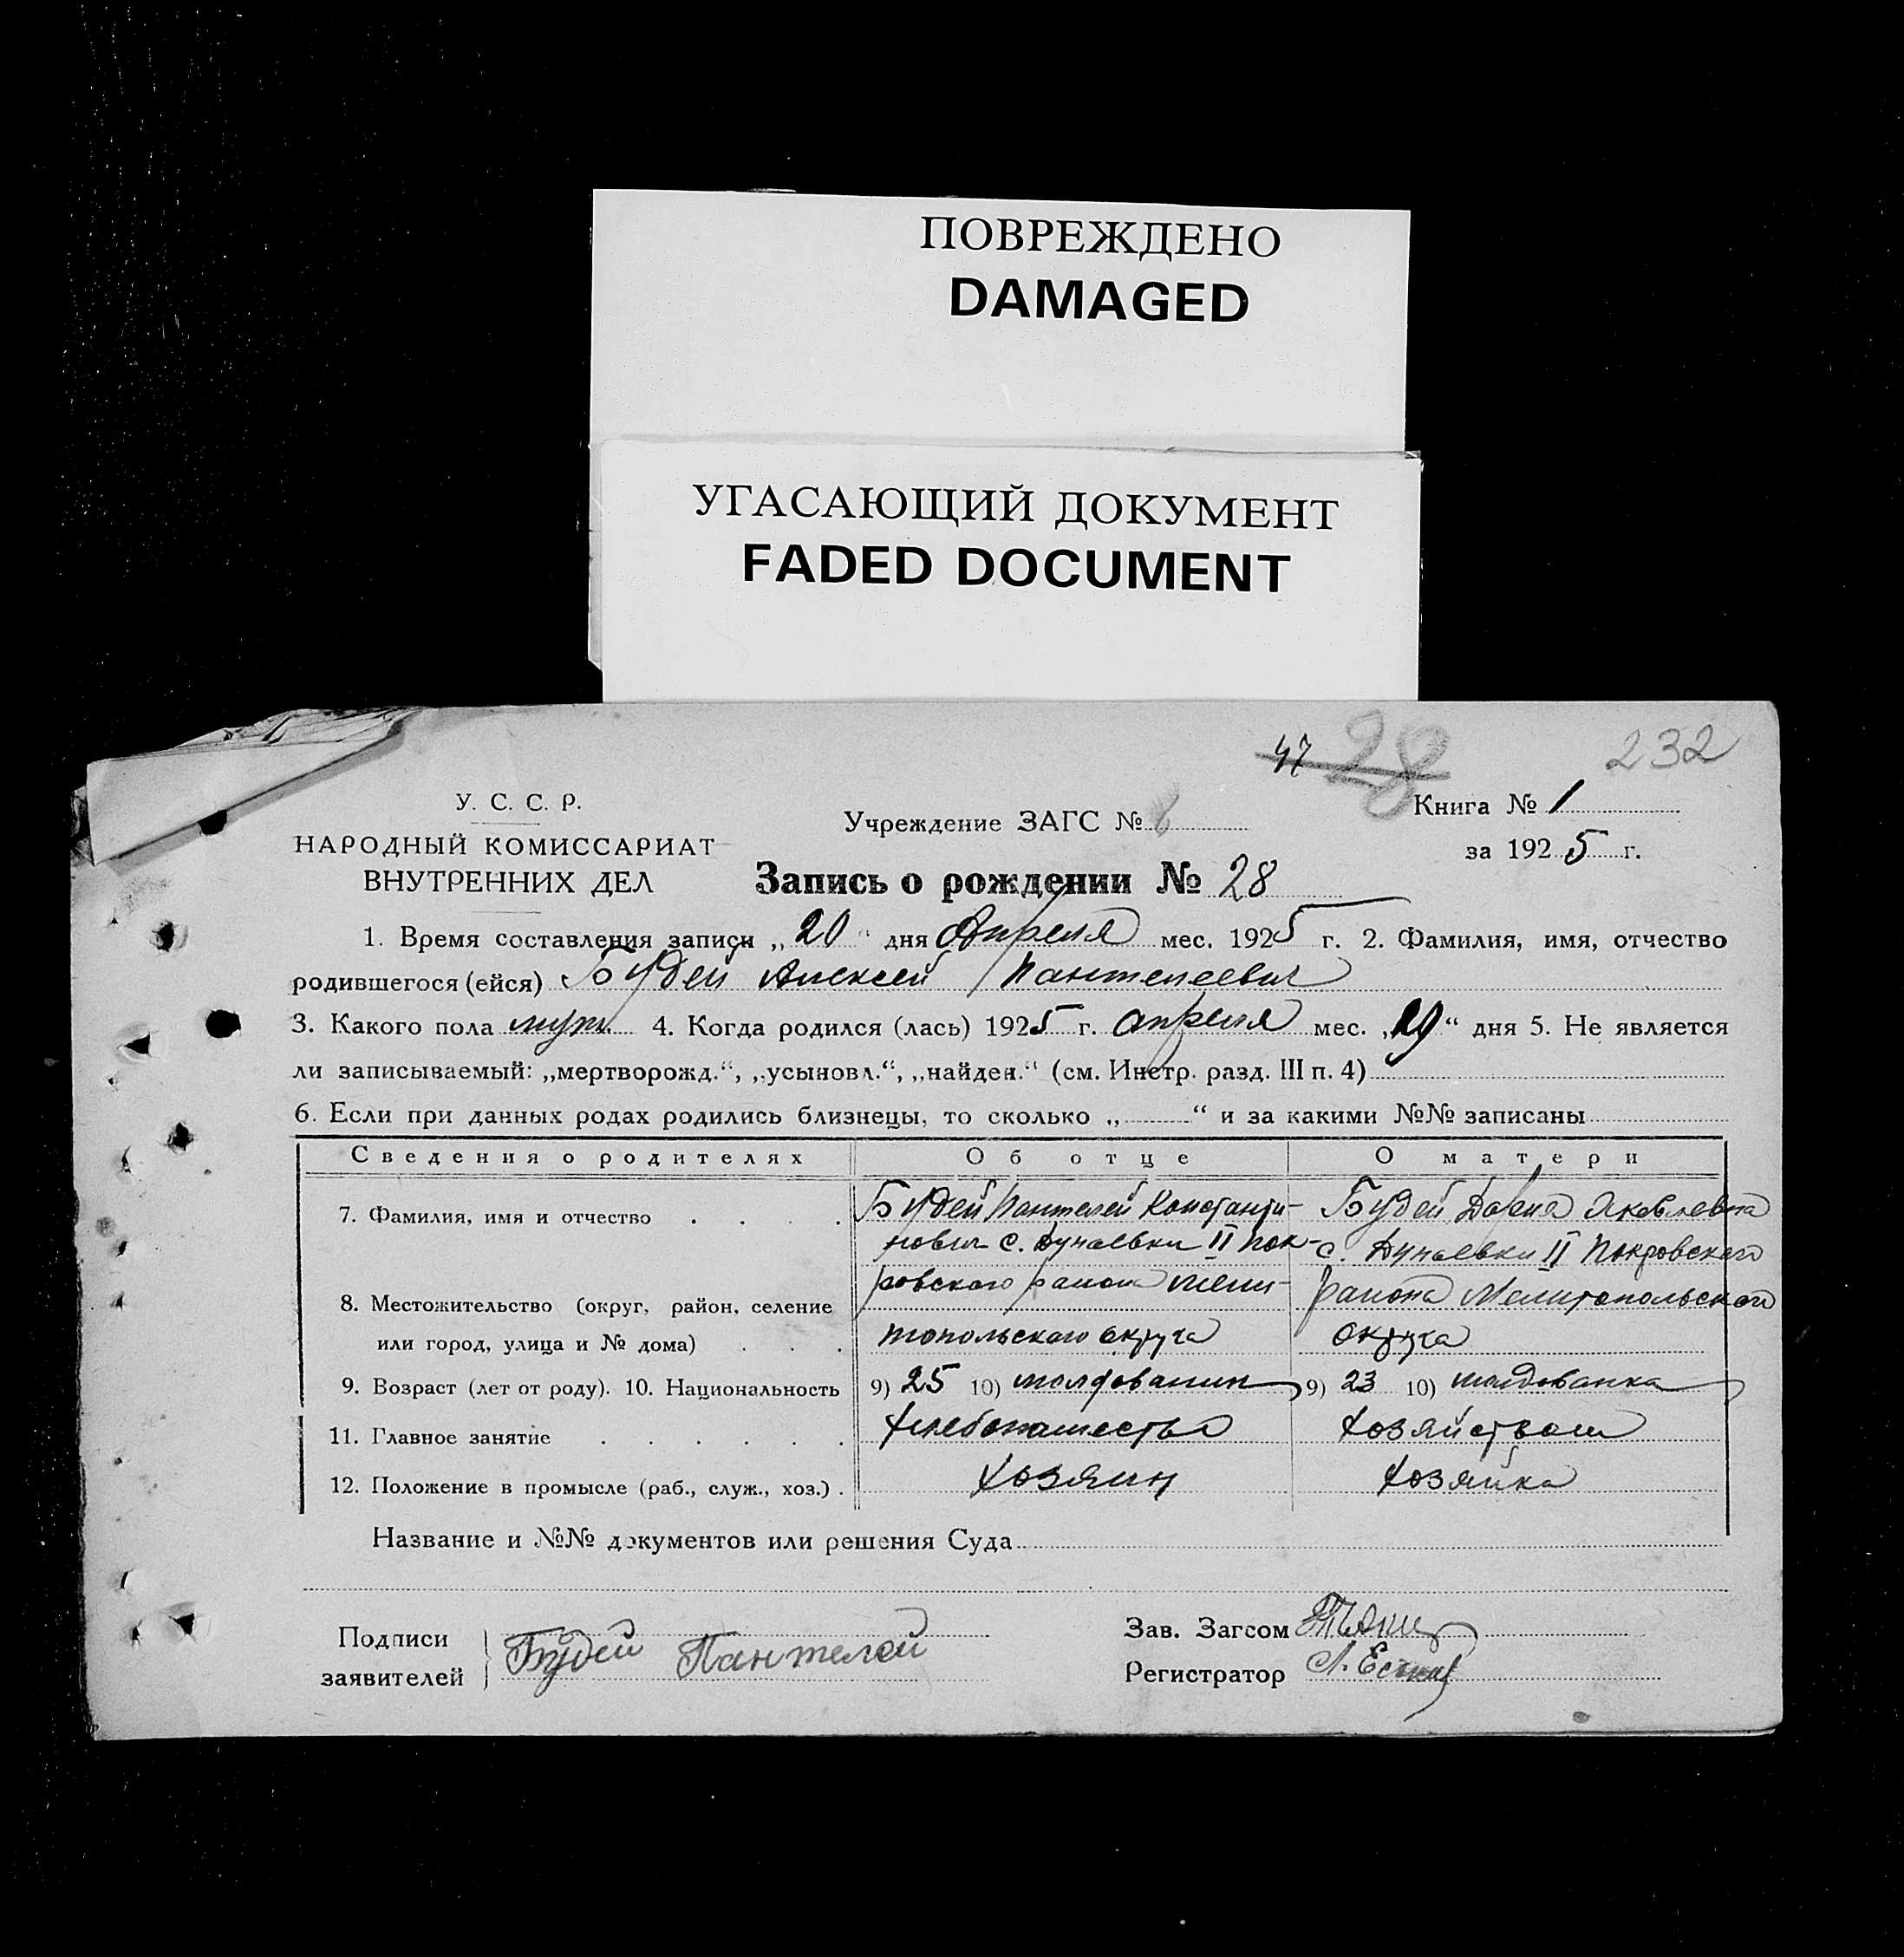 ПОВРЕЖДЕНО
DAMAGED
УГАСАЮЩИЙ ДОКУМЕНТ
FADED DOCUMENT
47 28 232
У. С. С. Р.
НАРОДНЫЙ КОМИССАРИАТ
ВНУТРЕННИХ ДЕЛ
Учреждение ЗАГС № 6
Книга № 1
за 1925 г.
Запись о рождении № 28
1. Время составления записи „20“ дня Апреля мес. 1925 г. 2. Фамилия, имя, отчество
родившегося (ейся) Будей Алексей Пантелеевич
3. Какого пола муж. 4. Когда родился (лась) 1925 г. апреля мес. „19“ дня 5. Не является
ли записываемый: „мертворожд.“, „усыновл.“, „найден.“ (см. Инстр. разд. III п. 4)
6. Если при данных родах родились близнецы, то сколько „ “ и за какими №№ записаны
Сведения о родителях Об отце О матери
7. Фамилия, имя и отчество Будей Пантелей Константи- Будей Дария Яковлевна
нович с. Дунаевки II Пок- с. Дунаевки II Покровского
ровского района Мели- района Мелитопольского
8. Местожительство (округ, район, селение
или город, улица и № дома) топольского округа округа
9. Возраст (лет от роду). 10. Национальность 9) 25 10) молдованин 9) 23 10) молдованка
11. Главное занятие хлебопашество хозяйством
12. Положение в промысле (раб., служ., хоз.) хозяин хозяйка
Название и №№ документов или решения Суда
Подписи
заявителей Будей Пантелей
Зав. Загсом
Регистратор